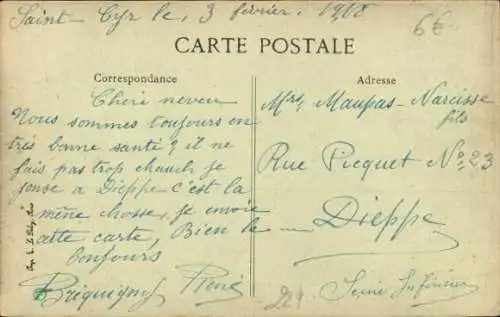 Saint-Cyr le, 3 février. 1918
6€
CARTE POSTALE
Correspondance
Cheri neveu
Nous sommes toujours en
très bonne santé ? il ne
fais pas trop chaud, je
pense a Dieppe c'est la
même chosse, je envoie
cette carte, Bien le
bonjours
René
Adresse
Maupas-Narcisse
fils
Rue Picquet No 23
Dieppe
Seine Inférieure